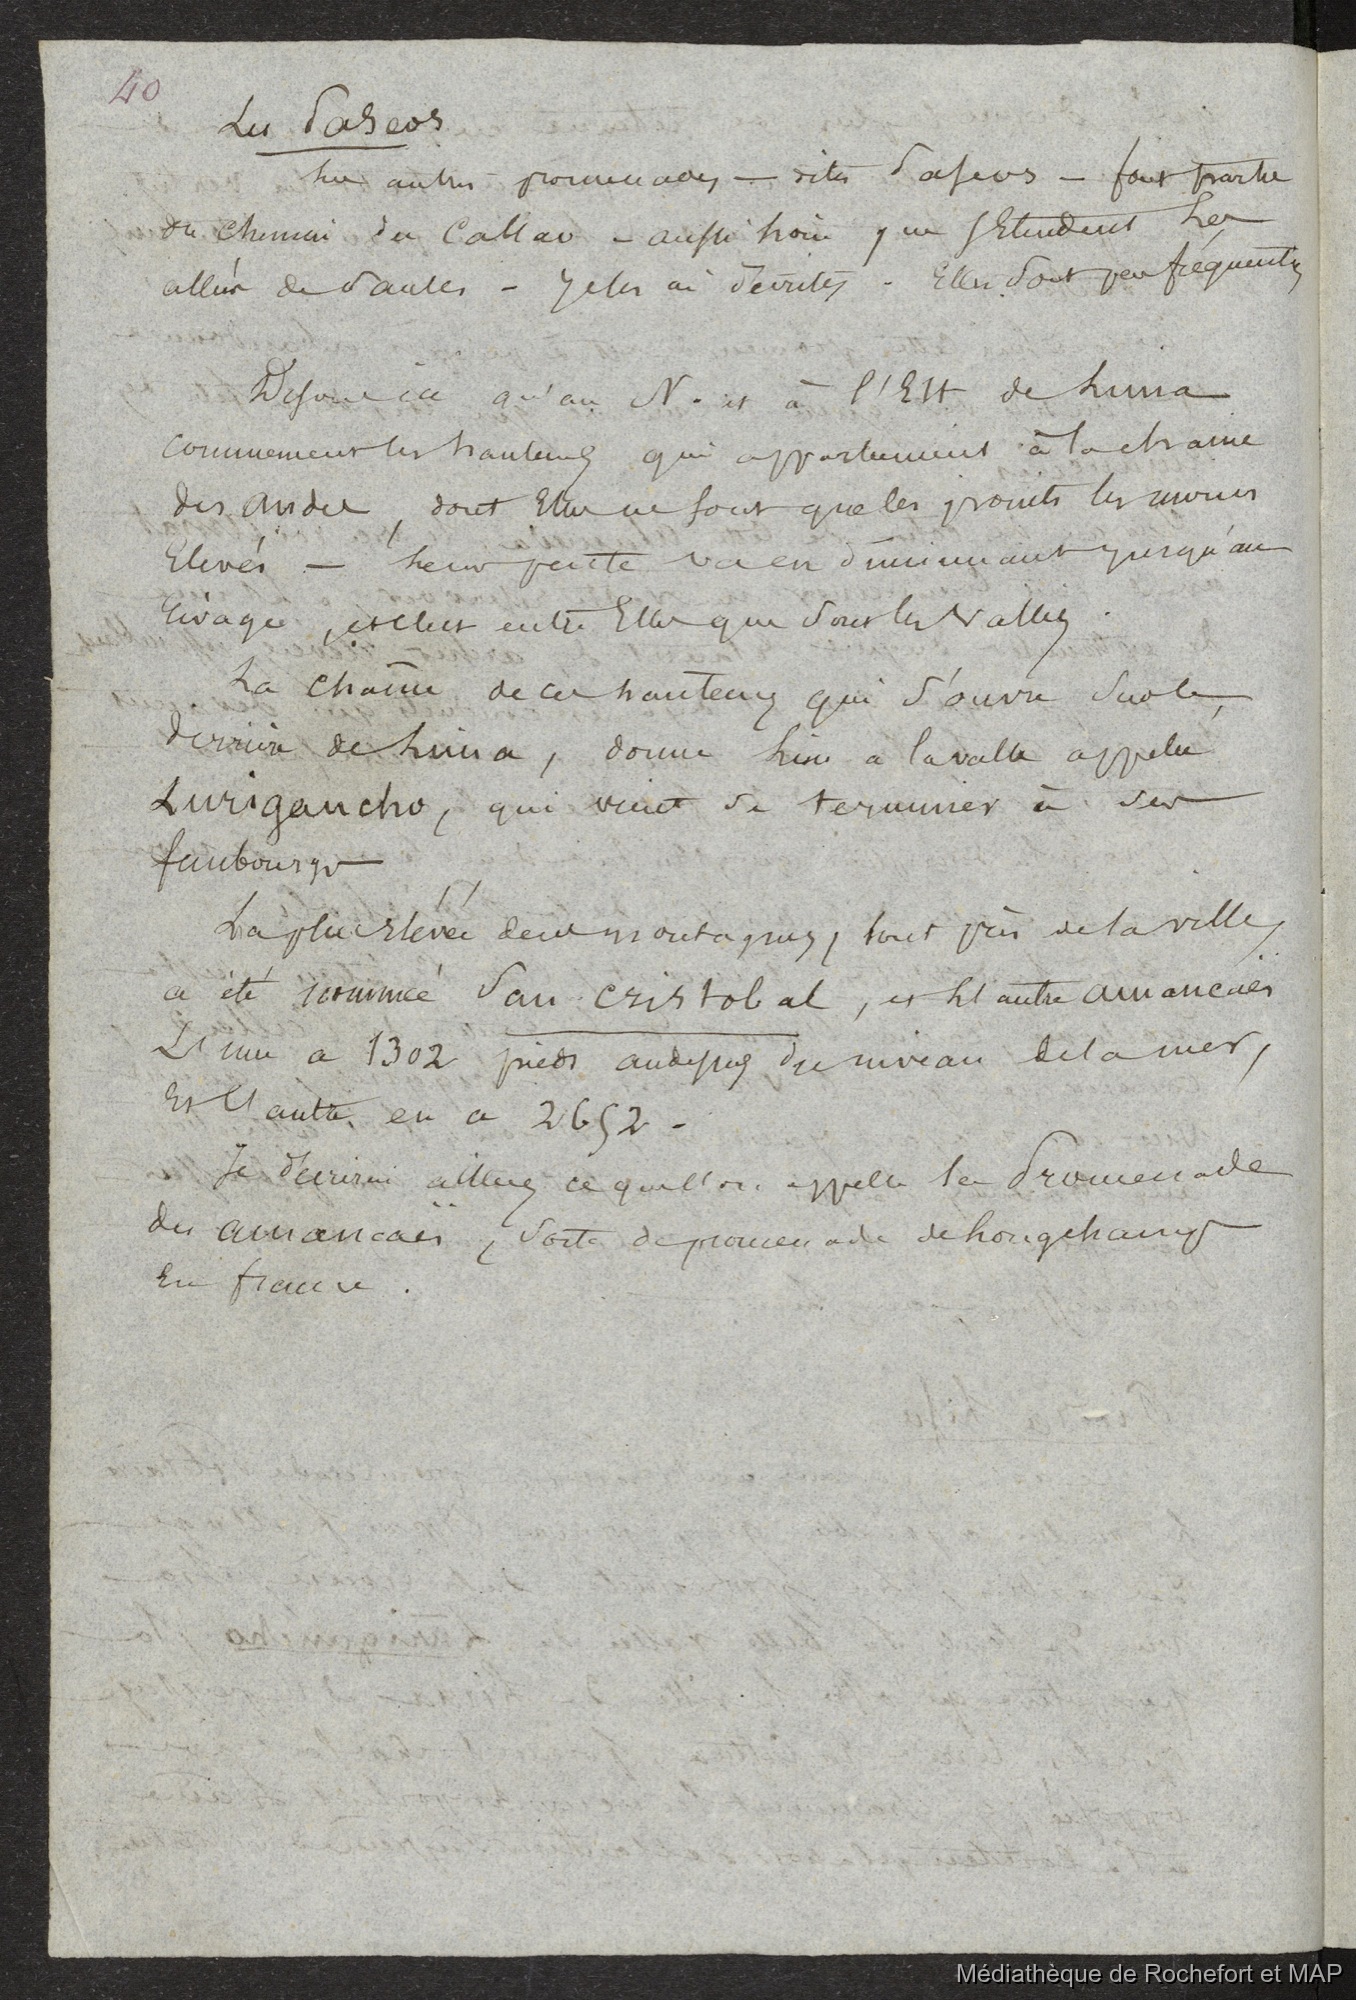 40
Les Paseos
Les autres promenades — dites Paseos — font partie
du chemin du Callao — aussi loin que s'Etendent Les
allées de Saules — Je les ai décrites. Elles sont peu fréquentées
qu'au N. et à l'Est de Lima
commencent les hauteurs qui appartiennent à la chaine
des andes, dont Elles ne sont que les points les moins
Elevés — Leur pente va en diminuant jusqu'au
rivage, et c'est entre Elles que sont les Vallées.
La chaîne de ces hauteurs qui s'ouvre
derrière de Lima, donne lieu a la vallée appelée
Lurigancho, qui vient se terminer à ses
faubourgs
La plus élévée de ces montagnes, tout près de la ville,
a été nommée San Cristobal, et L'autre amancaës
L'une a 1302 pieds audessus du niveau de la mer,
Et L'autre en a 2652 -
Je décrirai ailleurs ce que l'on appelle la Promenade
des amancaës, sorte de promenade de Longchamps
En france.
Médiathèque de Rochefort et MAP